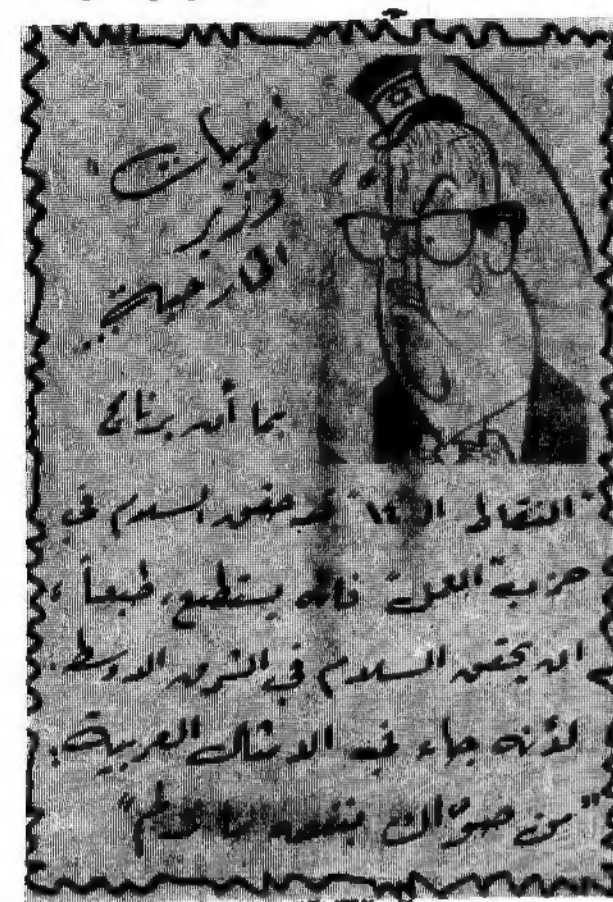 "عربيات"
وزير
الخارجية..
بما أن برنامج
"النقاط الـ ١٤" قد حقق السلام في
حزب العمل فانه يستطيع، طبعاً،
ان يحقق السلام في الشرق الاوسط.
لأنه جاء في الامثال العربية:
"من